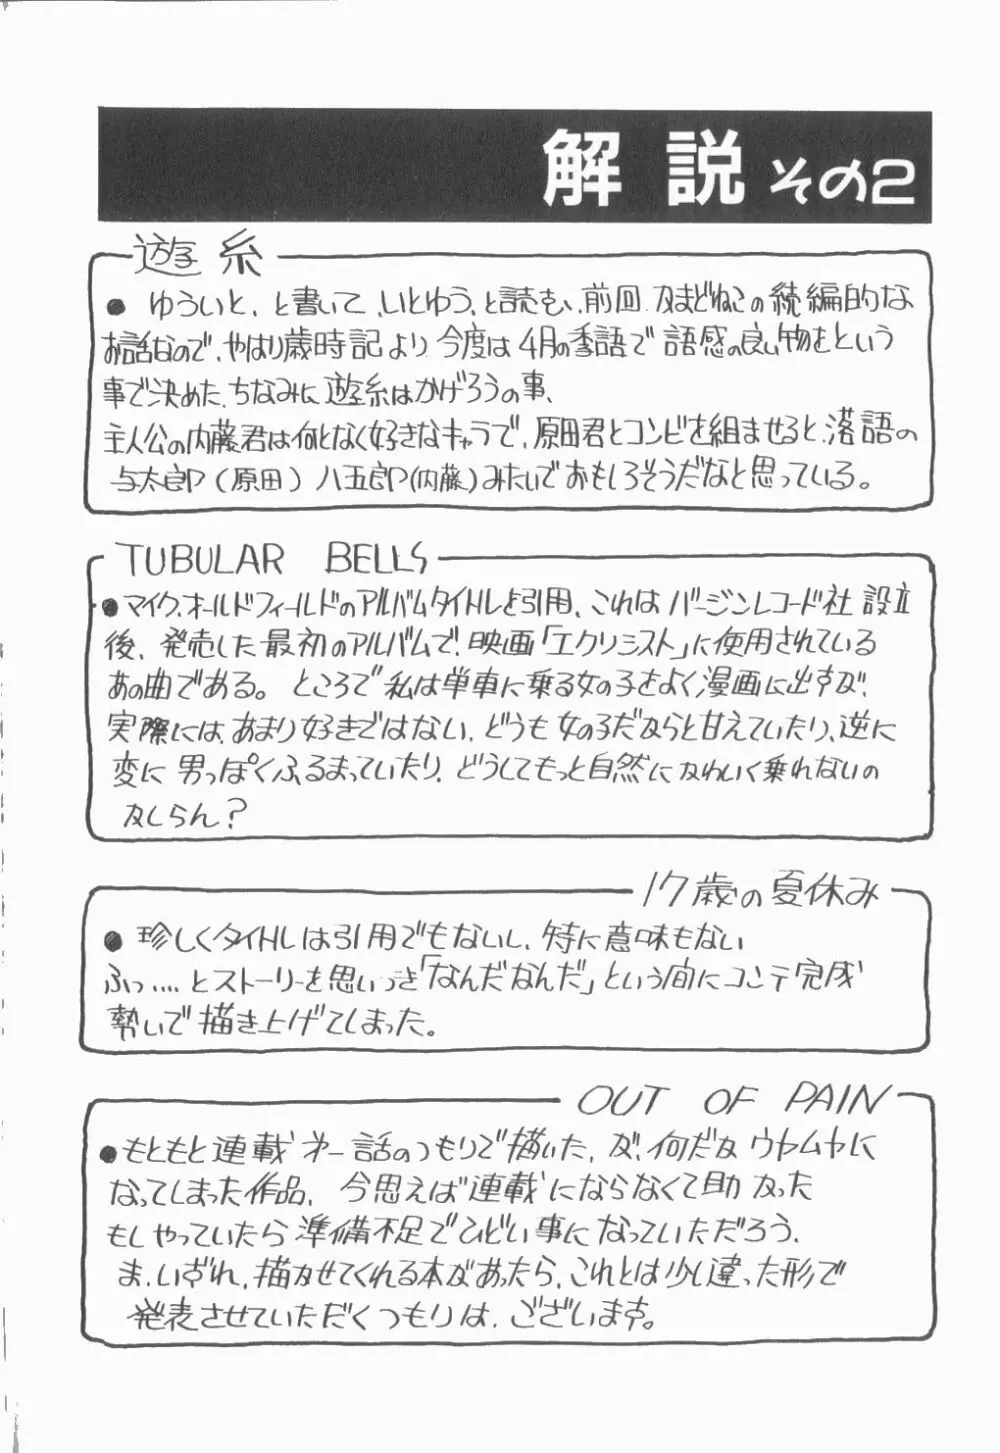 解説 その2
遊糸
● ゆういと、と書いて、いとゆう、と読む、前回、かまどねこの続編的な
お話なので、やはり歳時記より、今度は4月の季語で語感の良い物をという
事で決めた、ちなみに遊糸はかげろうの事、
主人公の内藤君は何となく好きなキャラで、原田君とコンビを組ませると、落語の
与太郎(原田)八五郎(内藤)みたいでおもしろそうだなと思っている。
TUBULAR BELLS
●マイク・オールドフィールドのアルバムタイトルを引用、これはバージンレコード社設立
後、発売した最初のアルバムで、映画「エクソシスト」に使用されている
あの曲である。ところで私は単車に乗る女の子をよく漫画に出すが、
実際には、あまり好きではない、どうも女の子だからと甘えていたり、逆に
変に男っぽくふるまっていたり、どうしてもっと自然にかわいく乗れないの
かしらん?
17歳の夏休み
● 珍しくタイトルは引用でもないし、特に意味もない
ふっ‥‥とストーリーを思いつき「なんだなんだ」という間にコンテ完成
勢いで描き上げてしまった。
OUT OF PAIN
●もともと連載第一話のつもりで描いた、が、何だかウヤムヤに
なってしまった作品、今思えば連載にならなくて助かった
もしやっていたら準備不足でひどい事になっていただろう、
ま、いずれ、描かせてくれる本があったら、これとは少し違った形で
発表させていただくつもりは、ございます。